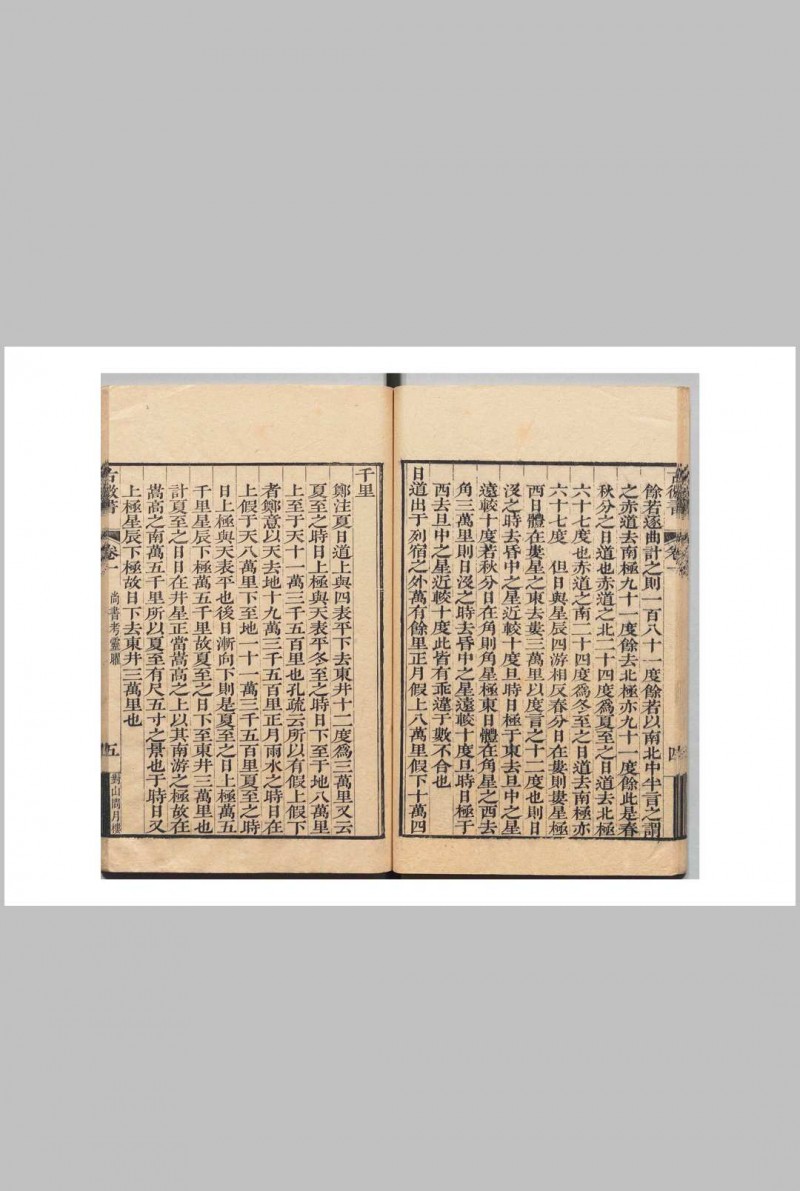 餘若逐曲計之則一百八十一度餘若以南北中半言之謂
之赤道去南極九十一度餘去北極亦九十一度餘此是春
秋分之日道也赤道之北二十四度爲夏至之日道去北極
六十七度也赤道之南二十四度爲冬至之日道去南極亦
六十七度 但日與星辰四游相反春分日在婁則婁星極
西日體在婁星之東去婁三萬里以度言之十二度也則日
沒之時去昏中之星近較十度旦時日極于東去旦中之星
遠較十度若秋分日在角則角星極東日體在角星之西去
角三萬里則日沒之時去昏中之星遠較十度旦時日極于
西去旦中之星近較十度此皆有乖違于數不合也
日道出于列宿之外萬有餘里正月假上八萬里假下十萬四
古微書
卷一
四
千里
鄭注夏日道上與四表平下去東井十二度爲三萬里又云
夏至之時日上極與天表平冬至之時日下至于地八萬里
上至于天十一萬三千五百里也孔疏云所以有假上假下
者鄭意以天去地十九萬三千五百里正月雨水之時日在
上假于天八萬里下至地一十一萬三千五百里夏至之時
日上極與天表平也後日漸向下則是夏至之日上極萬五
千里星辰下極萬五千里故夏至之日下至東井三萬里也
計夏至之日日在井星正當嵩高之上以其南游之極故在
嵩高之南萬五千里所以夏至有尺五寸之景也于時日又
上極星辰下極故日下去東井三萬里也
古微書
卷一
尚書考靈曜
五
對山問月樓